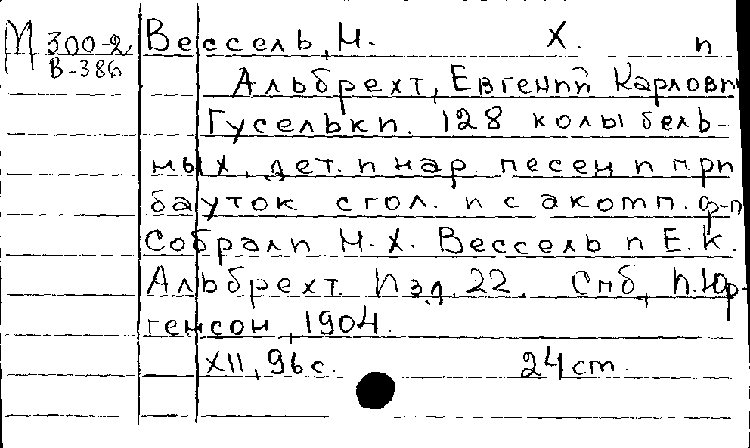 М 300-2 Вессель, Н. Х. и
В-386 Альбрехт, Евгений Карлови
Гусельки. 128 колыбель-
ных, дет. и нар песен и при
бауток с гол. и с акомп. ф-п
Собрали Н. Х. Вессель и Е. К.
Альбрехт. Изд. 22. Спб, П. Юр-
генсон, 1904.
XII, 96 с. 24 cm.